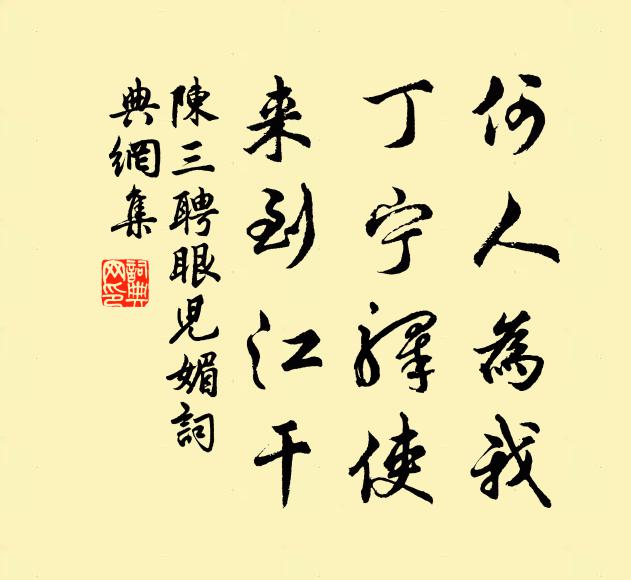 何人為我
丁宁驛使
来到江干
陳三聘眼児媚詞
典網集
詞典
网印